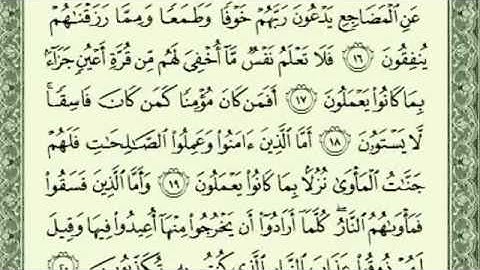 عَنِ ٱلْمَضَاجِعِ يَدْعُونَ رَبَّهُمْ خَوْفًا وَطَمَعًا وَمِمَّا رَزَقْنَٰهُمْ
يُنفِقُونَ ١٦ فَلَا تَعْلَمُ نَفْسٌ مَّآ أُخْفِىَ لَهُم مِّن قُرَّةِ أَعْيُنٍ جَزَآءًۢ
بِمَا كَانُوا۟ يَعْمَلُونَ ١٧ أَفَمَن كَانَ مُؤْمِنًا كَمَن كَانَ فَاسِقًا ۚ
لَّا يَسْتَوُۥنَ ١٨ أَمَّا ٱلَّذِينَ ءَامَنُوا۟ وَعَمِلُوا۟ ٱلصَّٰلِحَٰتِ فَلَهُمْ
جَنَّٰتُ ٱلْمَأْوَىٰ نُزُلًۢا بِمَا كَانُوا۟ يَعْمَلُونَ ١٩ وَأَمَّا ٱلَّذِينَ فَسَقُوا۟
فَمَأْوَىٰهُمُ ٱلنَّارُ ۖ كُلَّمَآ أَرَادُوٓا۟ أَن يَخْرُجُوا۟ مِنْهَآ أُعِيدُوا۟ فِيهَا وَقِيلَ
لَهُمْ ذُوقُوا۟ عَذَابَ ٱلنَّارِ ٱلَّذِى كُنتُم بِهِۦ تُكَذِّبُونَ ٢٠